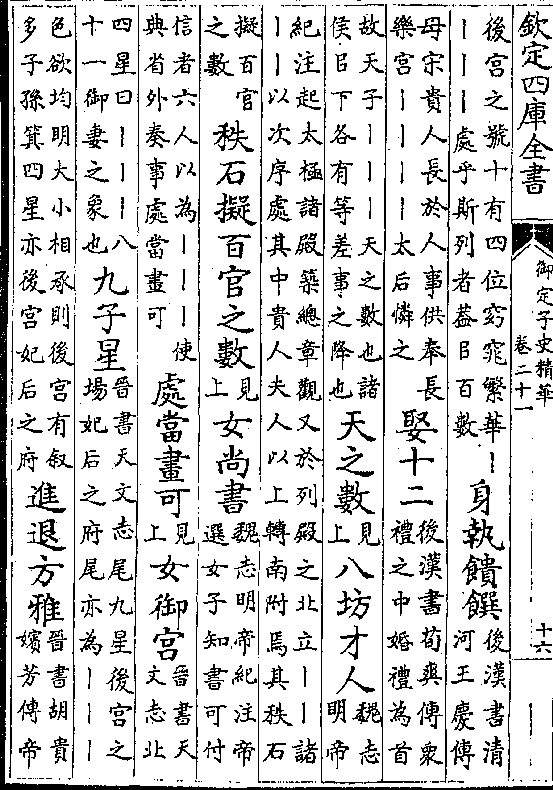 欽定四庫全書
御定子史精華
卷二十一
十六
後宮之號十有四位窈窕繁華｜｜｜處乎斯列者葢㠯百數身執饋饌後漢書清河王慶傳
母宋貴人長於人事供奉長樂宮｜｜｜｜太后憐之娶十二後漢書荀爽傳衆禮之中婚禮為首
故天子｜｜｜天之數也諸侯㠯下各有等差事之降也天之數見上八坊才人魏志明帝
紀注起太極諸殿築總章觀又於列殿之北立｜｜諸｜｜以次序處其中貴人夫人以上轉南附焉其秩石
擬百官之數秩石擬百官之數見上女尚書魏志明帝紀注帝選女子知書可付
信者六人以為｜｜｜使典省外奏事處當畫可處當畫可見上女御宮晉書天文志北
四星曰｜｜｜｜八十一御妻之象也九子星晉書天文志尾九星後宮之場妃后之府尾亦為｜｜｜
色欲均明大小相承則後宮有叙多子孫箕四星亦後宮妃后之府進退方雅晉書胡貴嬪芳傳帝